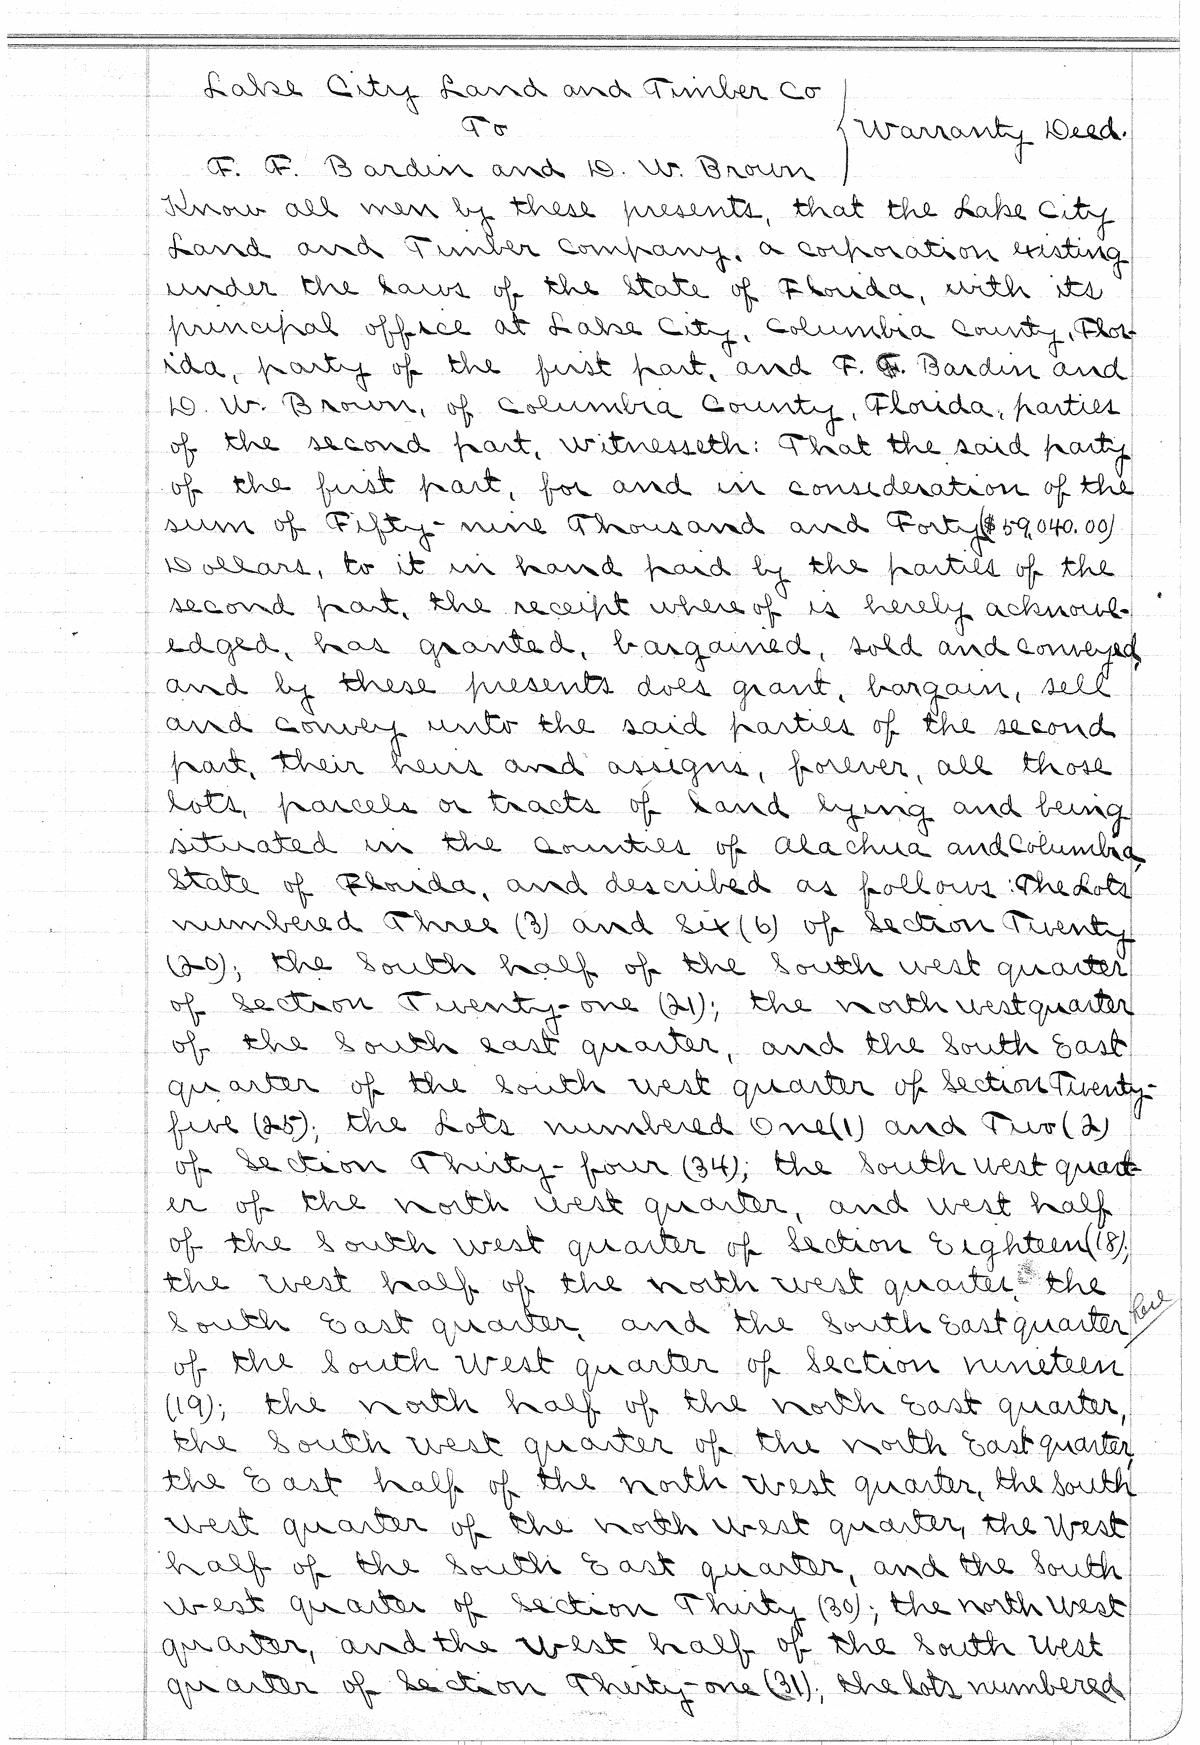 Lake City Land and Timber Co
To
Warranty Deed.
F. F. Bardin and D. W. Brown
Know all men by these presents, that the Lake City
Land and Timber Company, a corporation existing
under the laws of the State of Florida, with its
principal office at Lake City, Columbia County, Flor-
ida, party of the first part, and F. F. Bardin and
D. W. Brown, of Columbia County, Florida, parties
of the second part, witnesseth: That the said party
of the first part, for and in consideration of the
sum of Fifty-nine Thousand and Forty ($59,040.00)
Dollars, to it in hand paid by the parties of the
second part, the receipt whereof is hereby acknowl-
edged, has granted, bargained, sold and conveyed,
and by these presents does grant, bargain, sell
and convey unto the said parties of the second
part, their heirs and assigns, forever, all those
lots, parcels or tracts of land lying and being
situated in the counties of Alachua and Columbia,
State of Florida, and described as follows: The Lots
numbered Three (3) and Six (6) of Section Twenty
(20); the South half of the South west quarter
of Section Twenty-one (21); the north west quarter
of the South east quarter, and the South East
quarter of the South west quarter of Section Twenty-
five (25); the Lots numbered One (1) and Two (2)
of Section Thirty-four (34); the South west quart-
er of the north west quarter, and west half
of the South west quarter of Section Eighteen (18);
the west half of the north west quarter, the
South East quarter, and the South East quarter
of the South West quarter of Section nineteen
(19); the north half of the north East quarter,
the South west quarter of the north East quarter,
the East half of the north West quarter, the South
West quarter of the north west quarter, the West
half of the South East quarter, and the South
West quarter of Section Thirty (30); the north West
quarter, and the West half of the South West
quarter of Section Thirty-one (31); the lots numbered